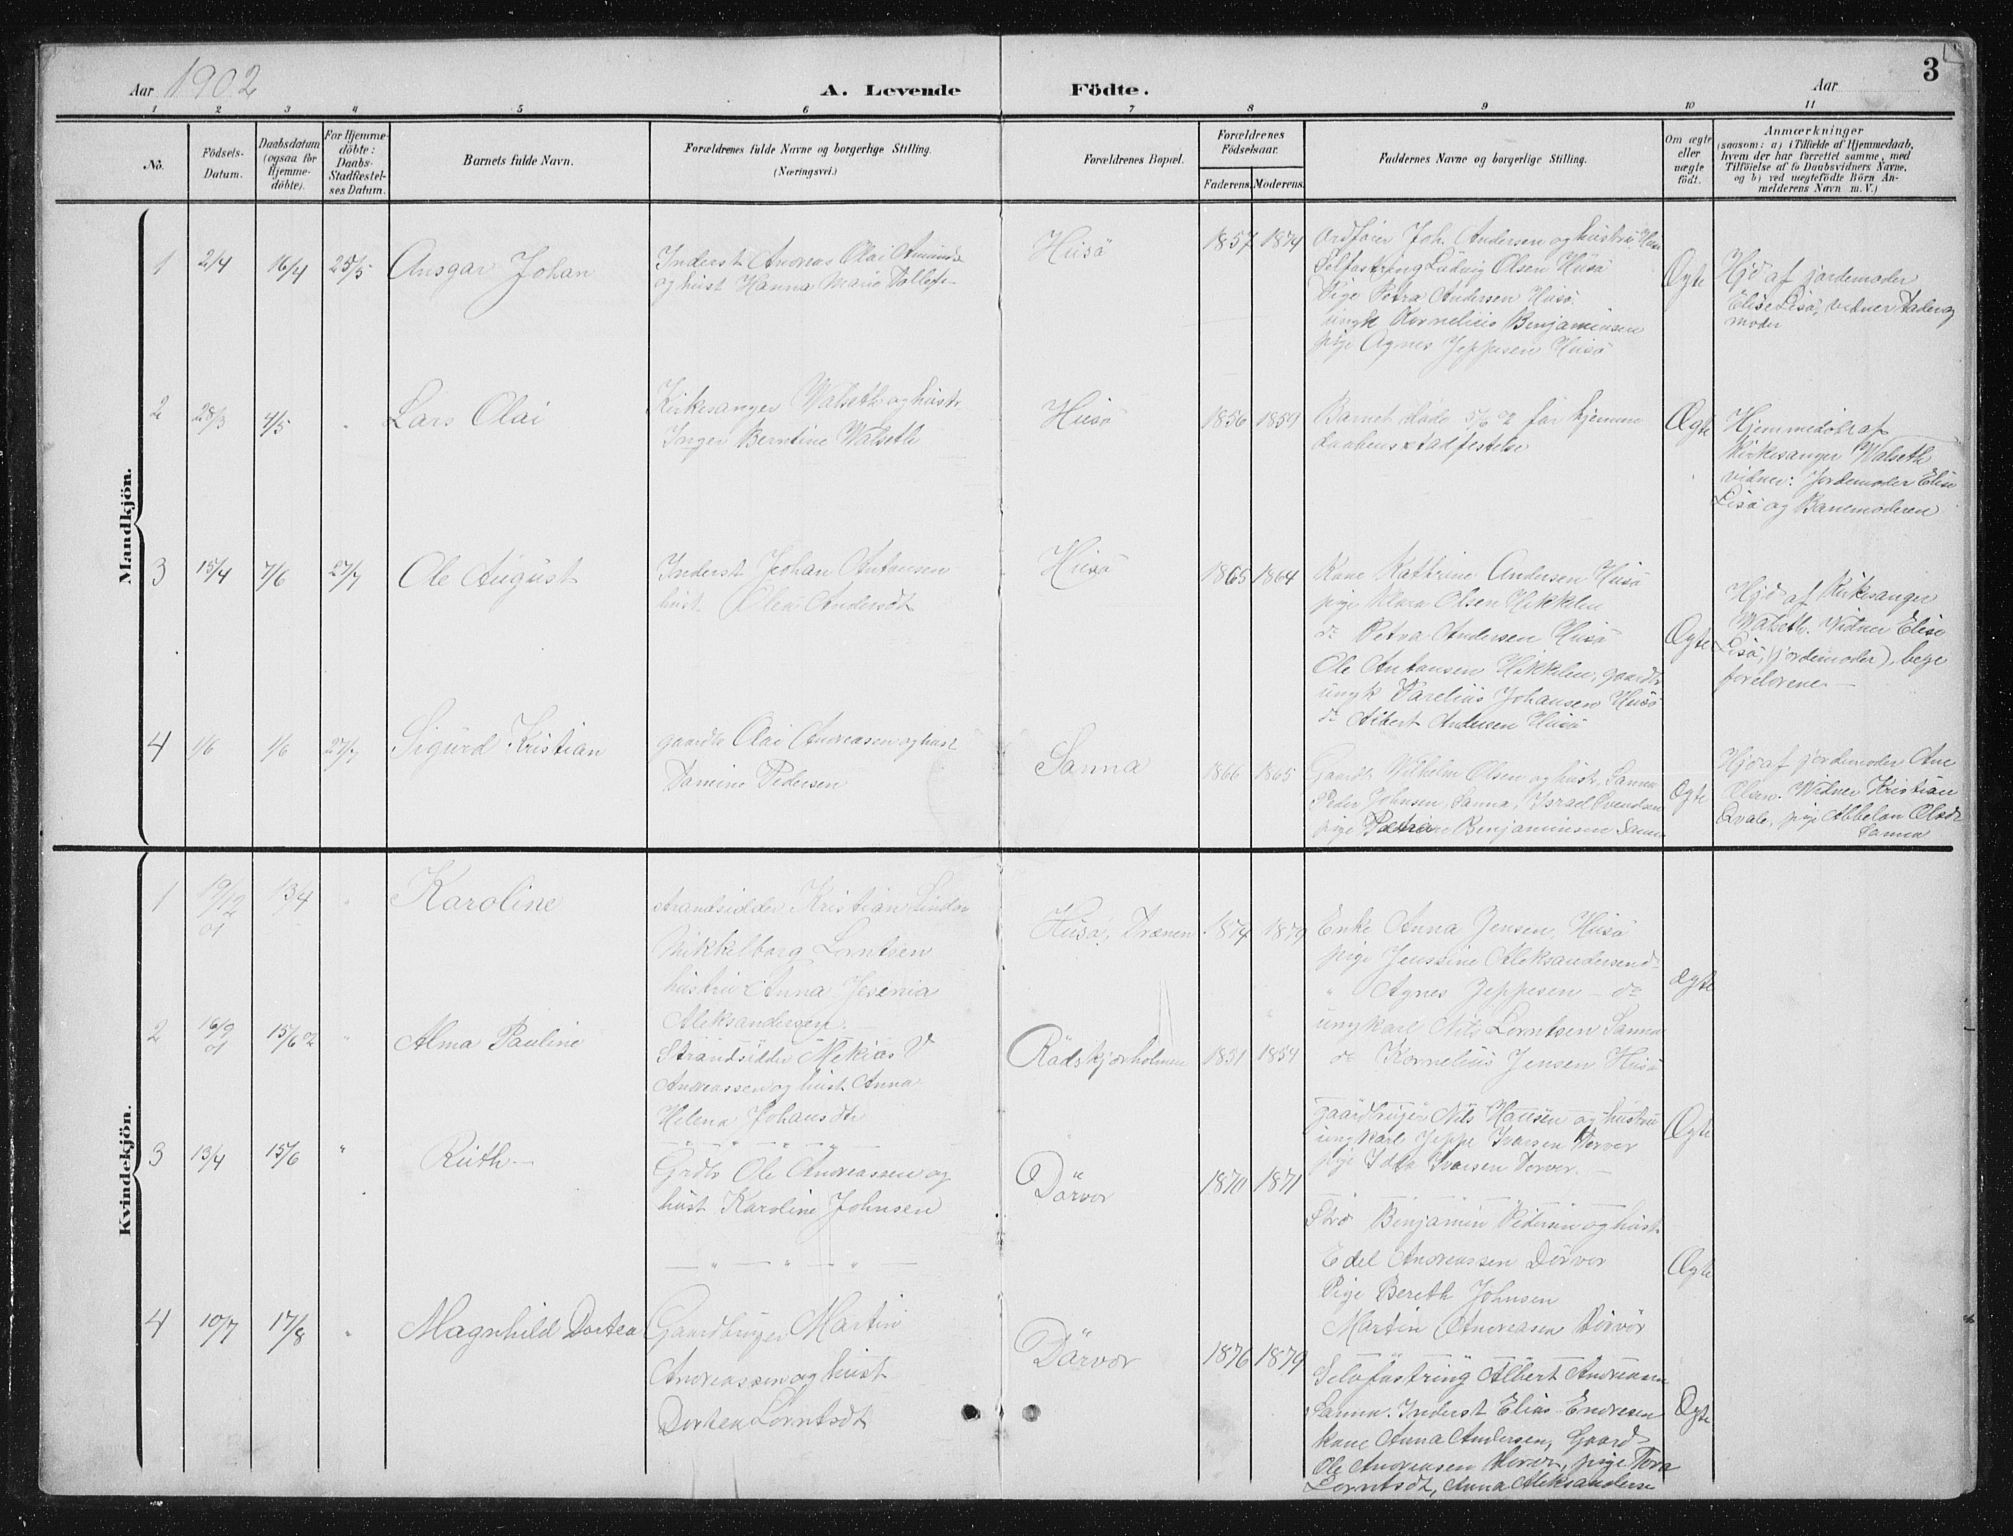 Aar 1902
A. Levende Födte.
Aar
3
1 2 3 4 5 6 7 8 9 10 11
No.
Födsels-Datum.
Daabsdatum (ogsaa for Hjemme-döbte).
For Hjemme-döbte: Daabs-Stadfæstel-ses Datum.
Barnets fulde Navn.
Forældrenes fulde Navne og borgerlige Stilling.
(Næringsvei.)
Forældrenes Bopæl.
Forældrenes Födselsaar.
Faderens. Moderens.
Faddernes Navne og borgerlige Stilling.
Om ægte eller uægte födt.
Anmærkninger
(saasom: a) i Tilfælde af Hjemmedaab,
hvem der har forrettet samme, med
Tilföielse af to Daabsvidners Navne,
og b) ved uegtefödte Börn An-
melderens Navn m. V.)
Mandkjön.
1 2/4 16/4 25/5 Ansgar Johan
Inderst Andreas Olai Amunds
og hust Hanna Marie Tollefs
Husö
1857 1874
Ordfører Joh. Andersen og hustru Husö
Ludvig Olsen Husö
Pige Petra Andersen Husö
ungk Kornelius Benjaminsen
pige Agnes Jeppesen Husö
Ægte
Hjd af jordemoder
Elise Lisö, vidner Fader og
moder
2 28/3 4/5 " Lars Olai
Kirkesanger Walseth og hustr
Inger Berntine Walseth
Husö
1856 1859
Barnet døde 5/6 02 før hjemme
daabens stadfestelse
Ægte
Hjemmedöbt af
Kirkesanger Walseth
vidner: Jordemoder Elise
Lisö og Barnemoderen
3 15/4 7/6 27/7 Ole August
Inderst Johan Antonsen
hust Olea Andersdt
Husö
1865 1864
Kone Kathrine Andersen Husö
pige Klara Olsen Hikkelen
do Petra Andersen Husö
Ole Antonsen Hikkelen, gaardbr
ungk Parelius Johansen Husö
do Albert Andersen Husö
Ægte
Hjd af Kirkesanger
Walseth. Vidner Elise
Lisö, (jordemoder), begge
forelorene.
4 1/6 1/6 27/7 Sigurd Kristian
gaardbr Olai Andreasen og hust
Pedersen
Sanna
1866 1865
Gaardb. Wilhelm Olsen og hust, Sanna
Peder Johnsen, Sanna, Israel Svendsen
pige Benjaminsen Sanna
Ægte
Hjd af jordemoder Ane
Olsen. Widner Kristian
Qvale, pige Abbelon Olsdt
Sanna
Kvindekjön.
1 19/12 01 13/4 " Karoline
strandsidder Kristian Lindor
Mikkelborg Lorntsen
hustru Anna Jesenia
Aleksandersen
Husö, Trænen
1874 1879
Enke Anna Jensen, Husö
pige Jenssine Aleksandersen do
" Agnes Jeppesen – do
ungkarl Nils Lorntsen Sanna
do Kornelius Jensen Husö
ægte
2 16/9 01 15/6 02 " Alma Pauline
Strandsidder Mekias V
Andreassen og hust Anna
Helena Johansdtr
Rödskjærholmen
1851 1854
gaardbruger Nils Hansen og hustru
ungkarl Jeppe Ivarsen Torvær
pige Ida Ivarsen Torvær.
Ægte
3 13/4 15/6 " Ruth
Grdbr Ole Andreassen og
hust Karoline Johnsen
Dörvær
1870 1871
Benjamin Pedersen og hust
Edel Andreassen Dörvær
Pige Bereth Johnsen
Martin Andreasen Dörvör
Ægte
4 10/7 17/8 " Magnhild Dortea
Gaardbruger Martin
Andreassen og hust
Dortea Lorntsdt
Dörvær
1876 1879
Albert Andreassen
Sanna. Inderst Elias Endresen
kone Anna Andersen, Gaard
Ole Andreasen Dörvör, pige Tora
Lorntsdt, Anna Aleksanderse
Ægte